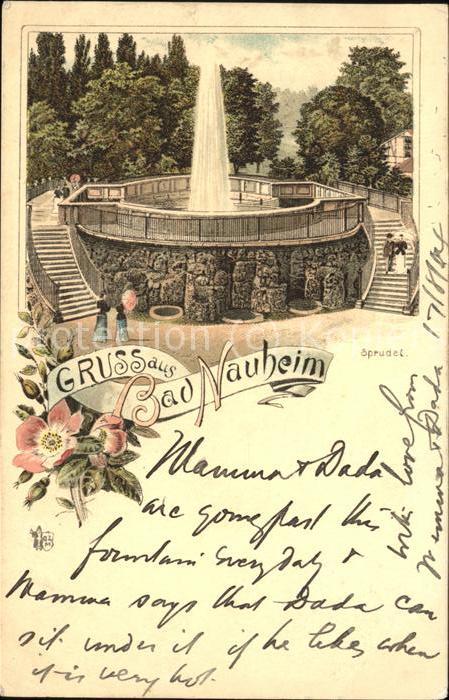 Sprudel.
GRUSS aus
Bad Nauheim
Mamma & Dada
are going past this
fountain every day &
Mamma says that Dada can
sit under it if he likes when
it is very hot.
with love from
Mamma & Dada
17/